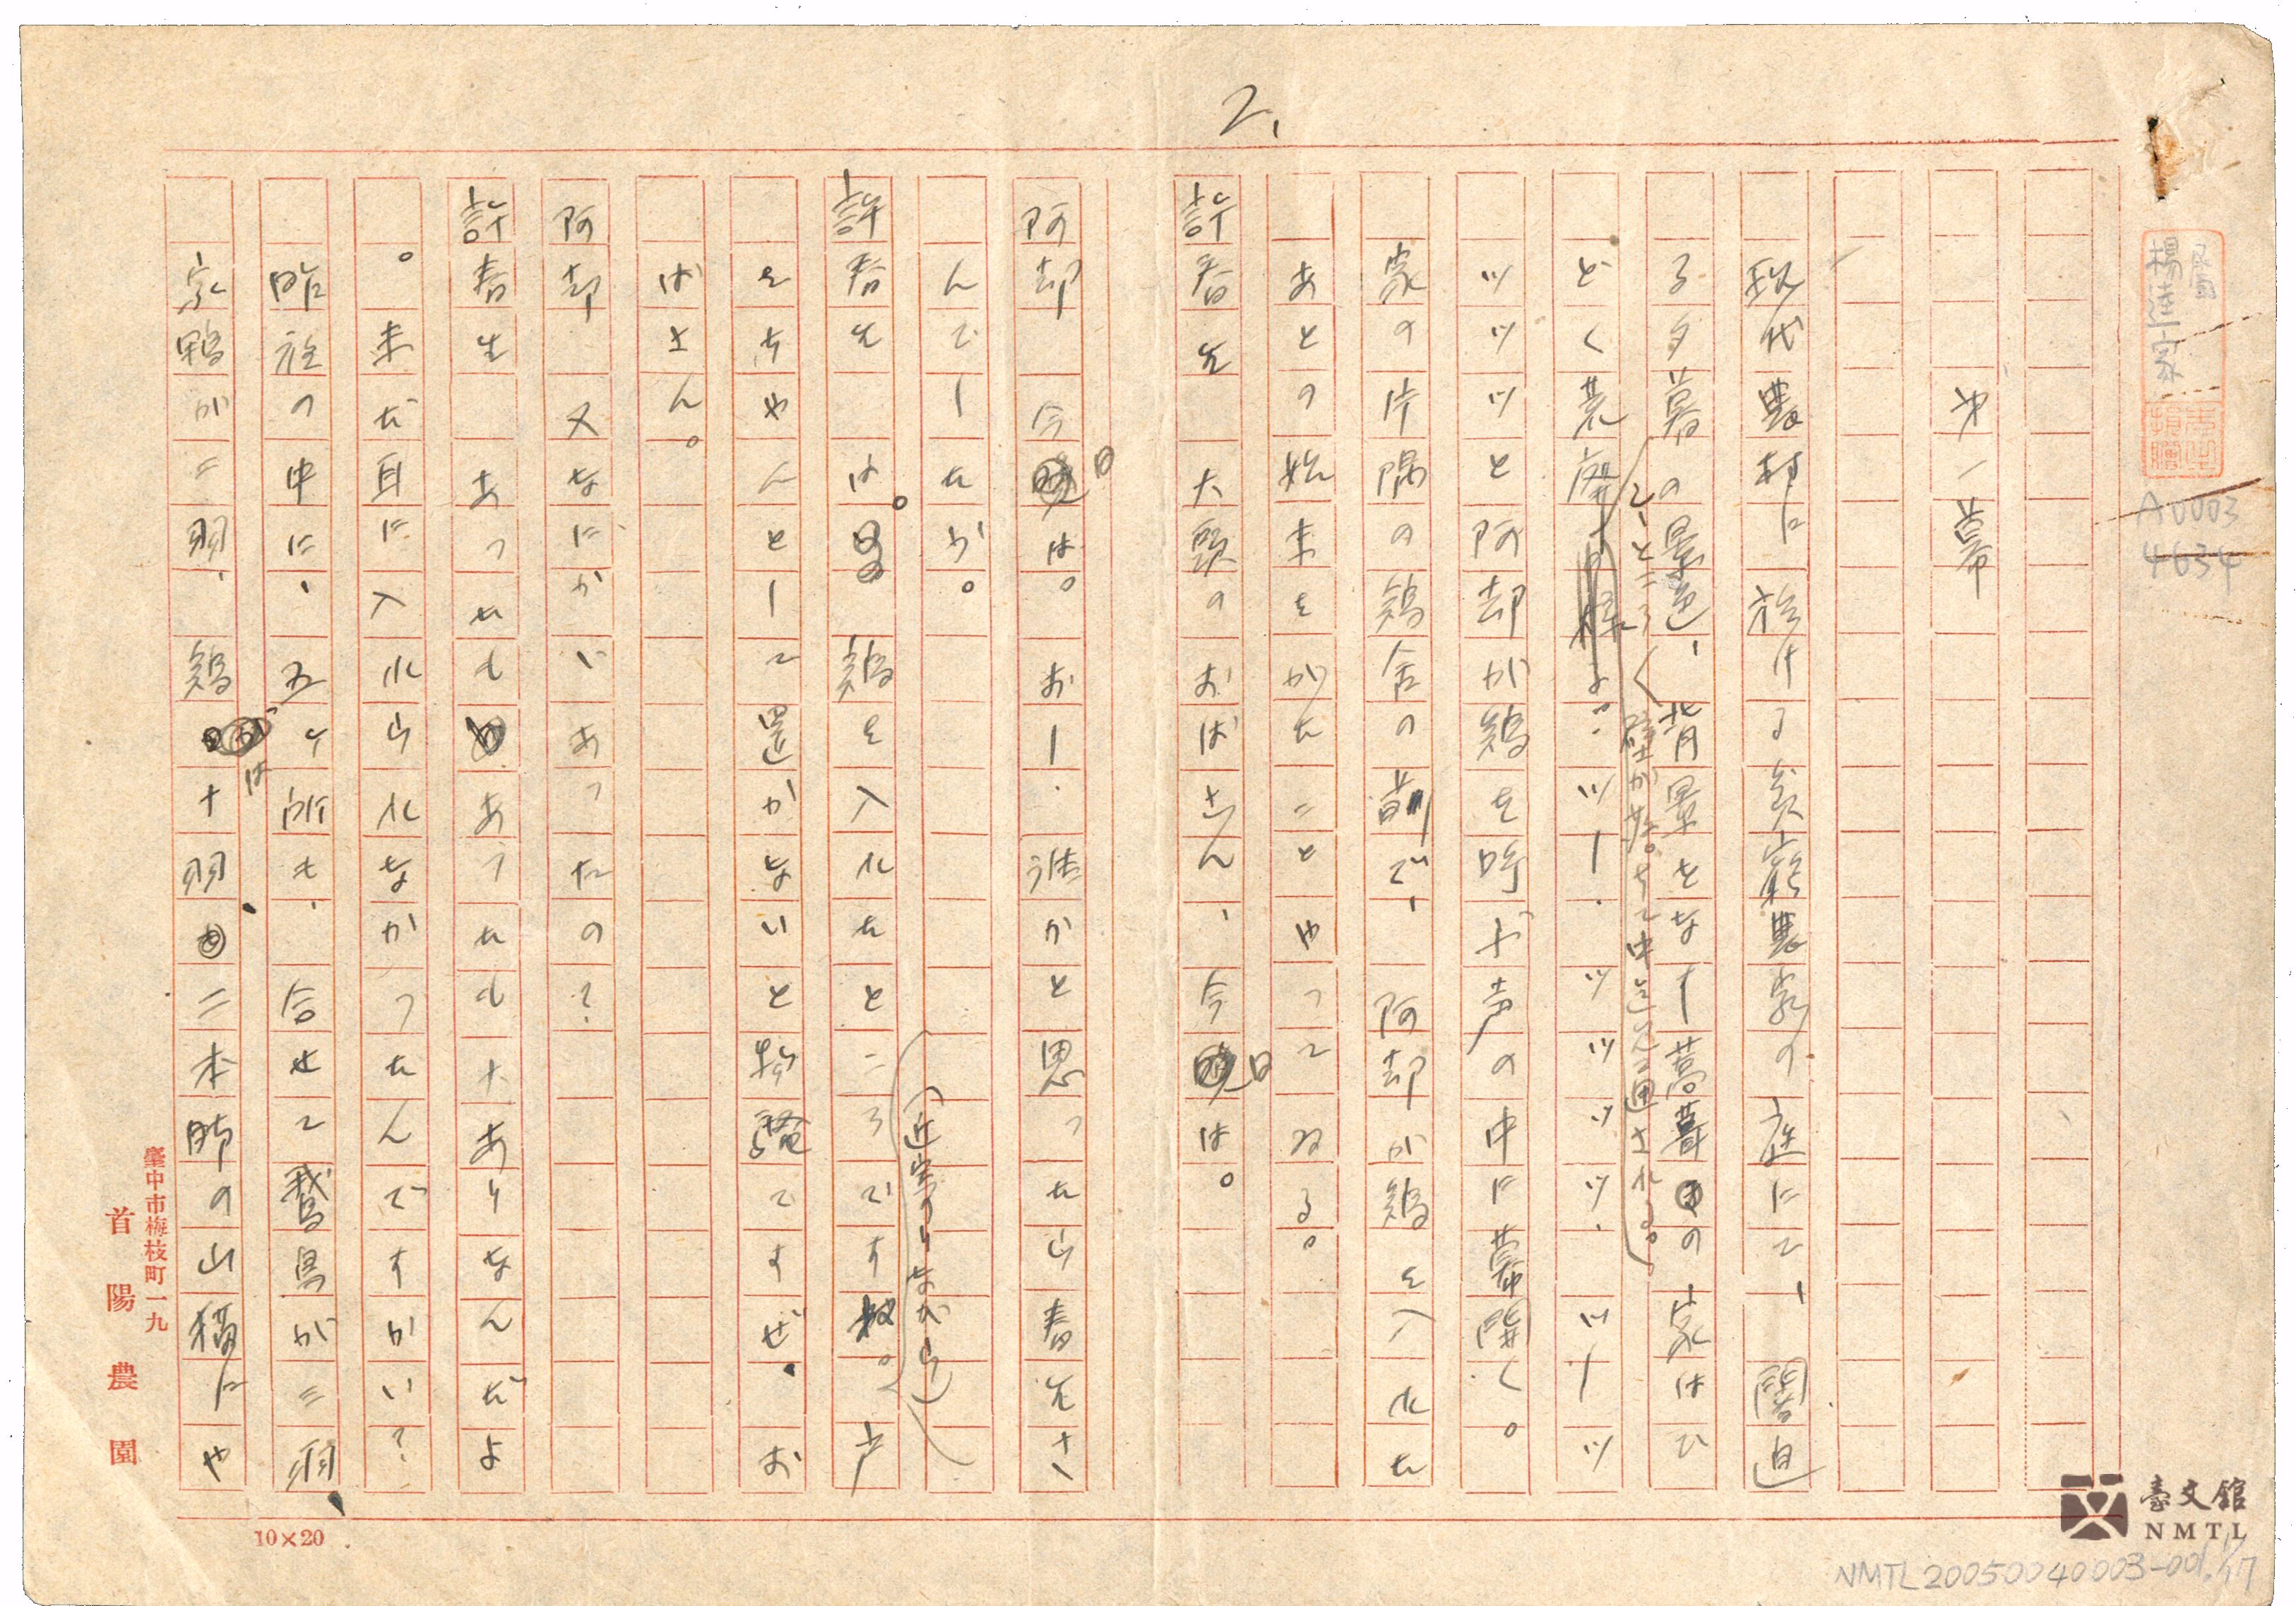 2、
第一幕
現代農村に於ける貧窮農家の庭にて、闇迫
る夕暮の景色、背景をなす蒿葺の家はひ
どく荒廃すよ。ツー・ツツツツ・ツーツ
ところ〲壁が落ちて中迄見通される。
ツツツツと阿却が鶏を呼ぶ声の中に幕開く。
家の片隅の鶏舎の前で、阿却が鶏を入れた
あとの始末をかたことやってゐる。
許春生 大頭のおばさん、今日は。
阿却 今日は。おー、誰かと思ったら春生さ
んでしたか。
(近寄りながら)
許春生 は。鶏を入れたところです枚。戸
をちやんとして置かないと物騒ですぜ。お
ばさん。
阿却 又なにかいあったの?
許春生 あったもあうたも大ありなんだよ
。未だ耳に入れられなかったんですかい?
昨夜の中に、五ヶ所も、合せて鵞鳥が三羽、
家鴨が二羽、鶏は十羽二本脚の山猫にや
臺中市梅枝町一九
首陽農園
10×20
楊逵家
A0003
4634
臺文館
NMTL
NMTL20050040003-001.17